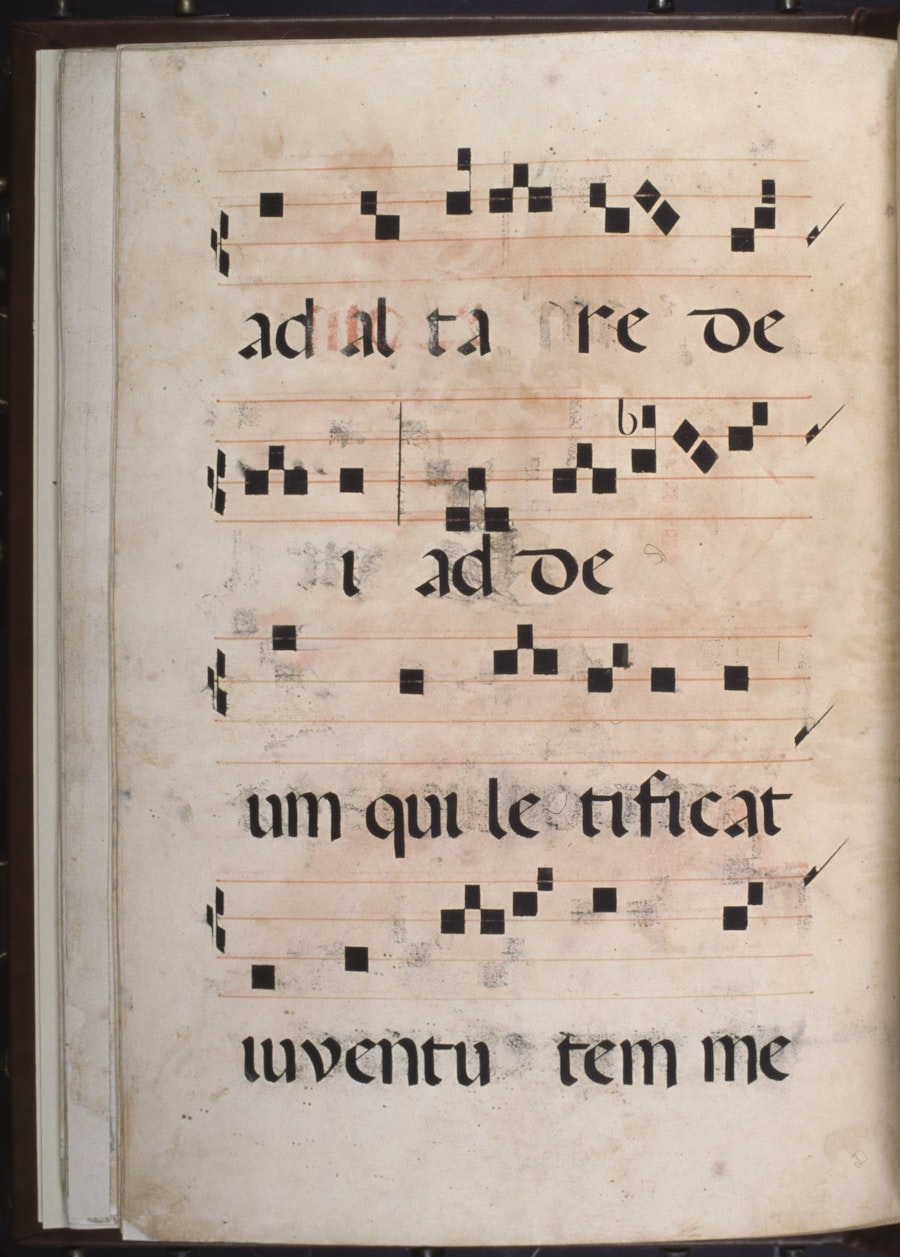 ad al ta re de
b
i ad de
um qui le tificat
iuventu tem me